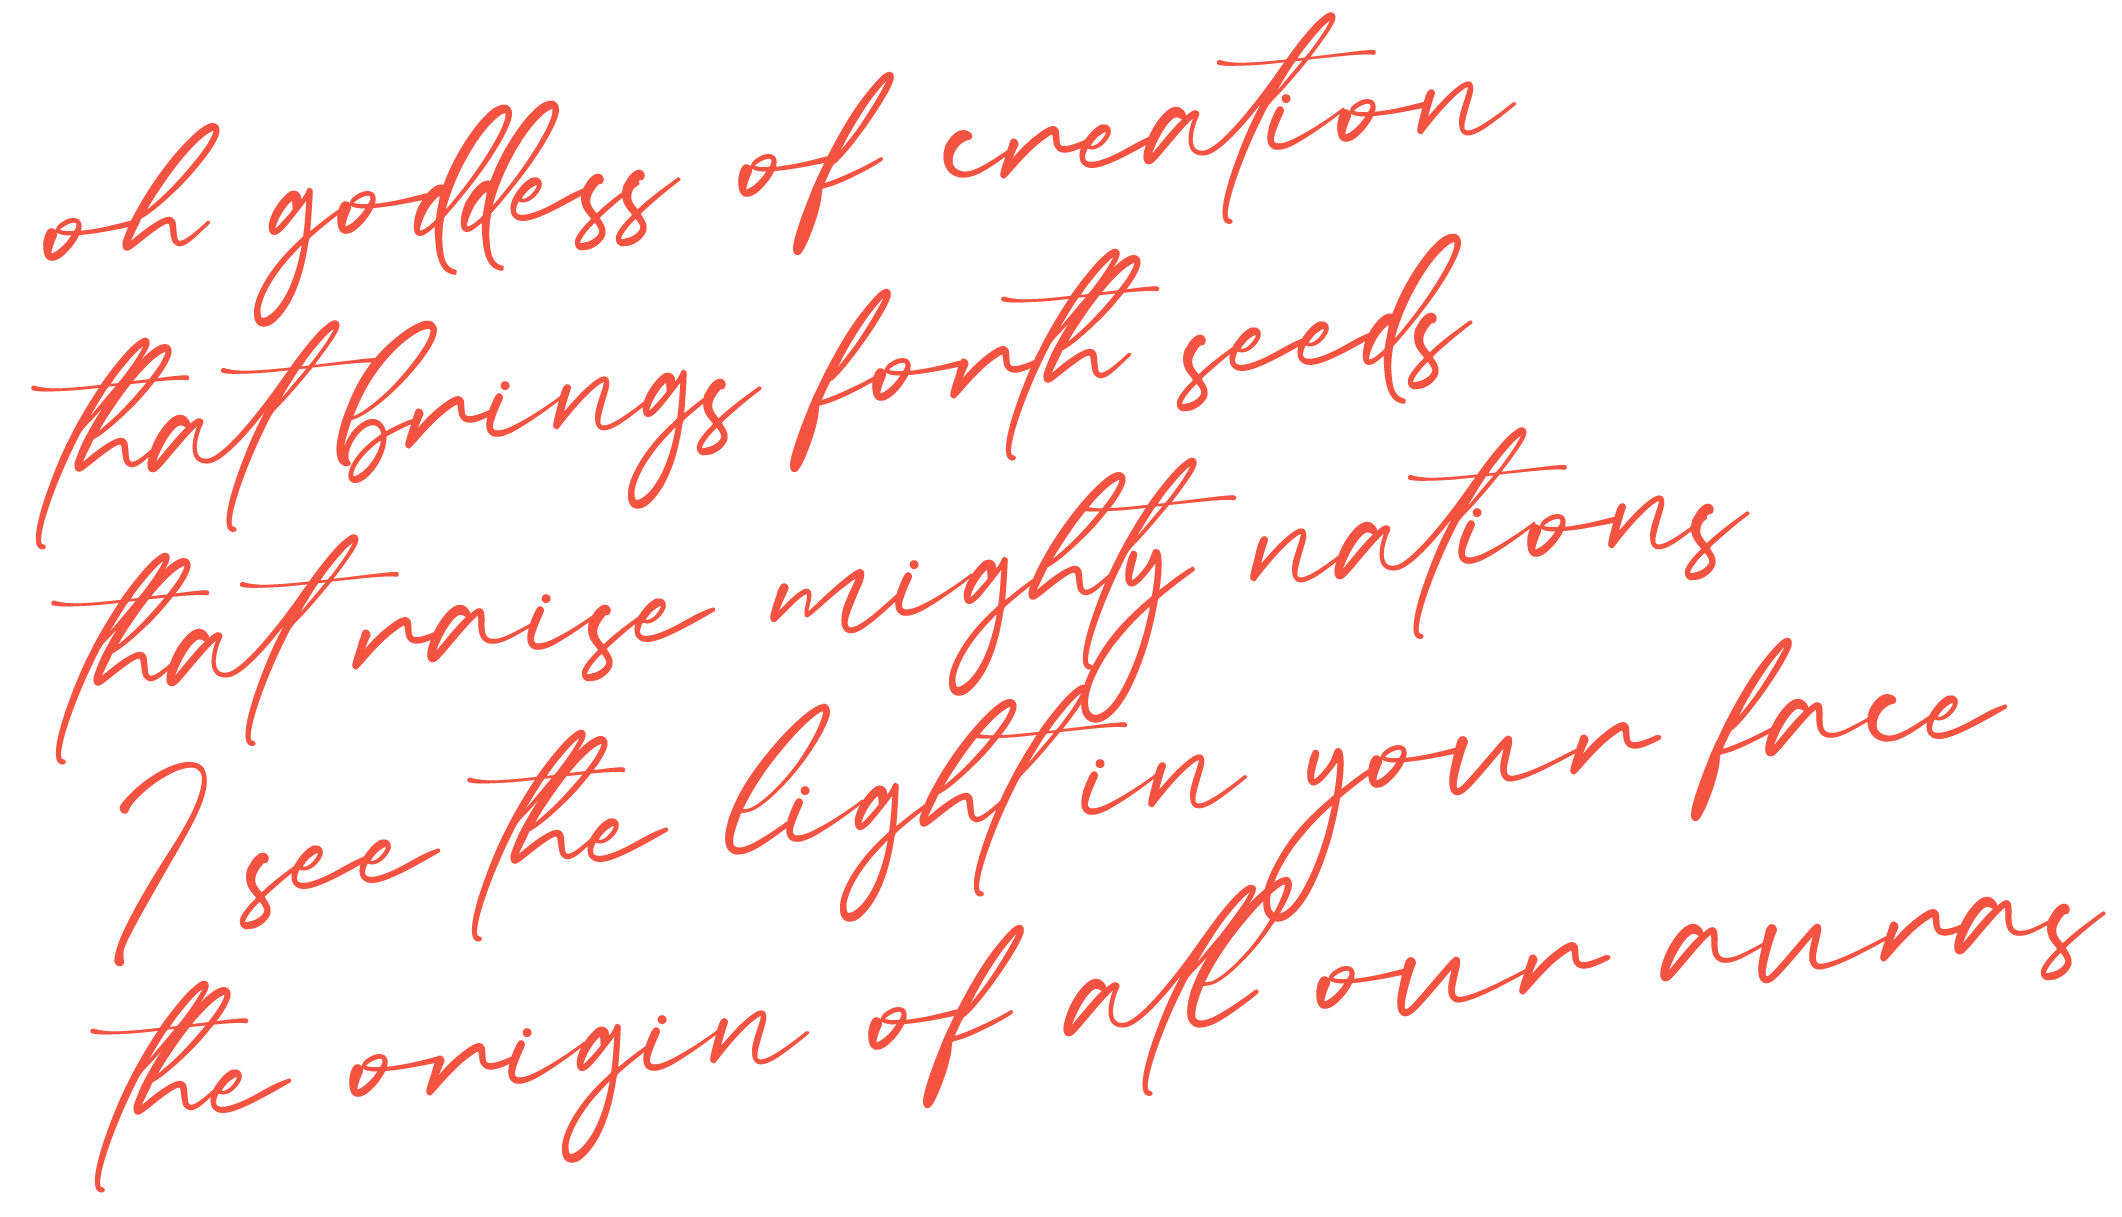 oh goddess of creation
that brings forth seeds
that raise mighty nations
I see the light in your face
the origin of all our auras